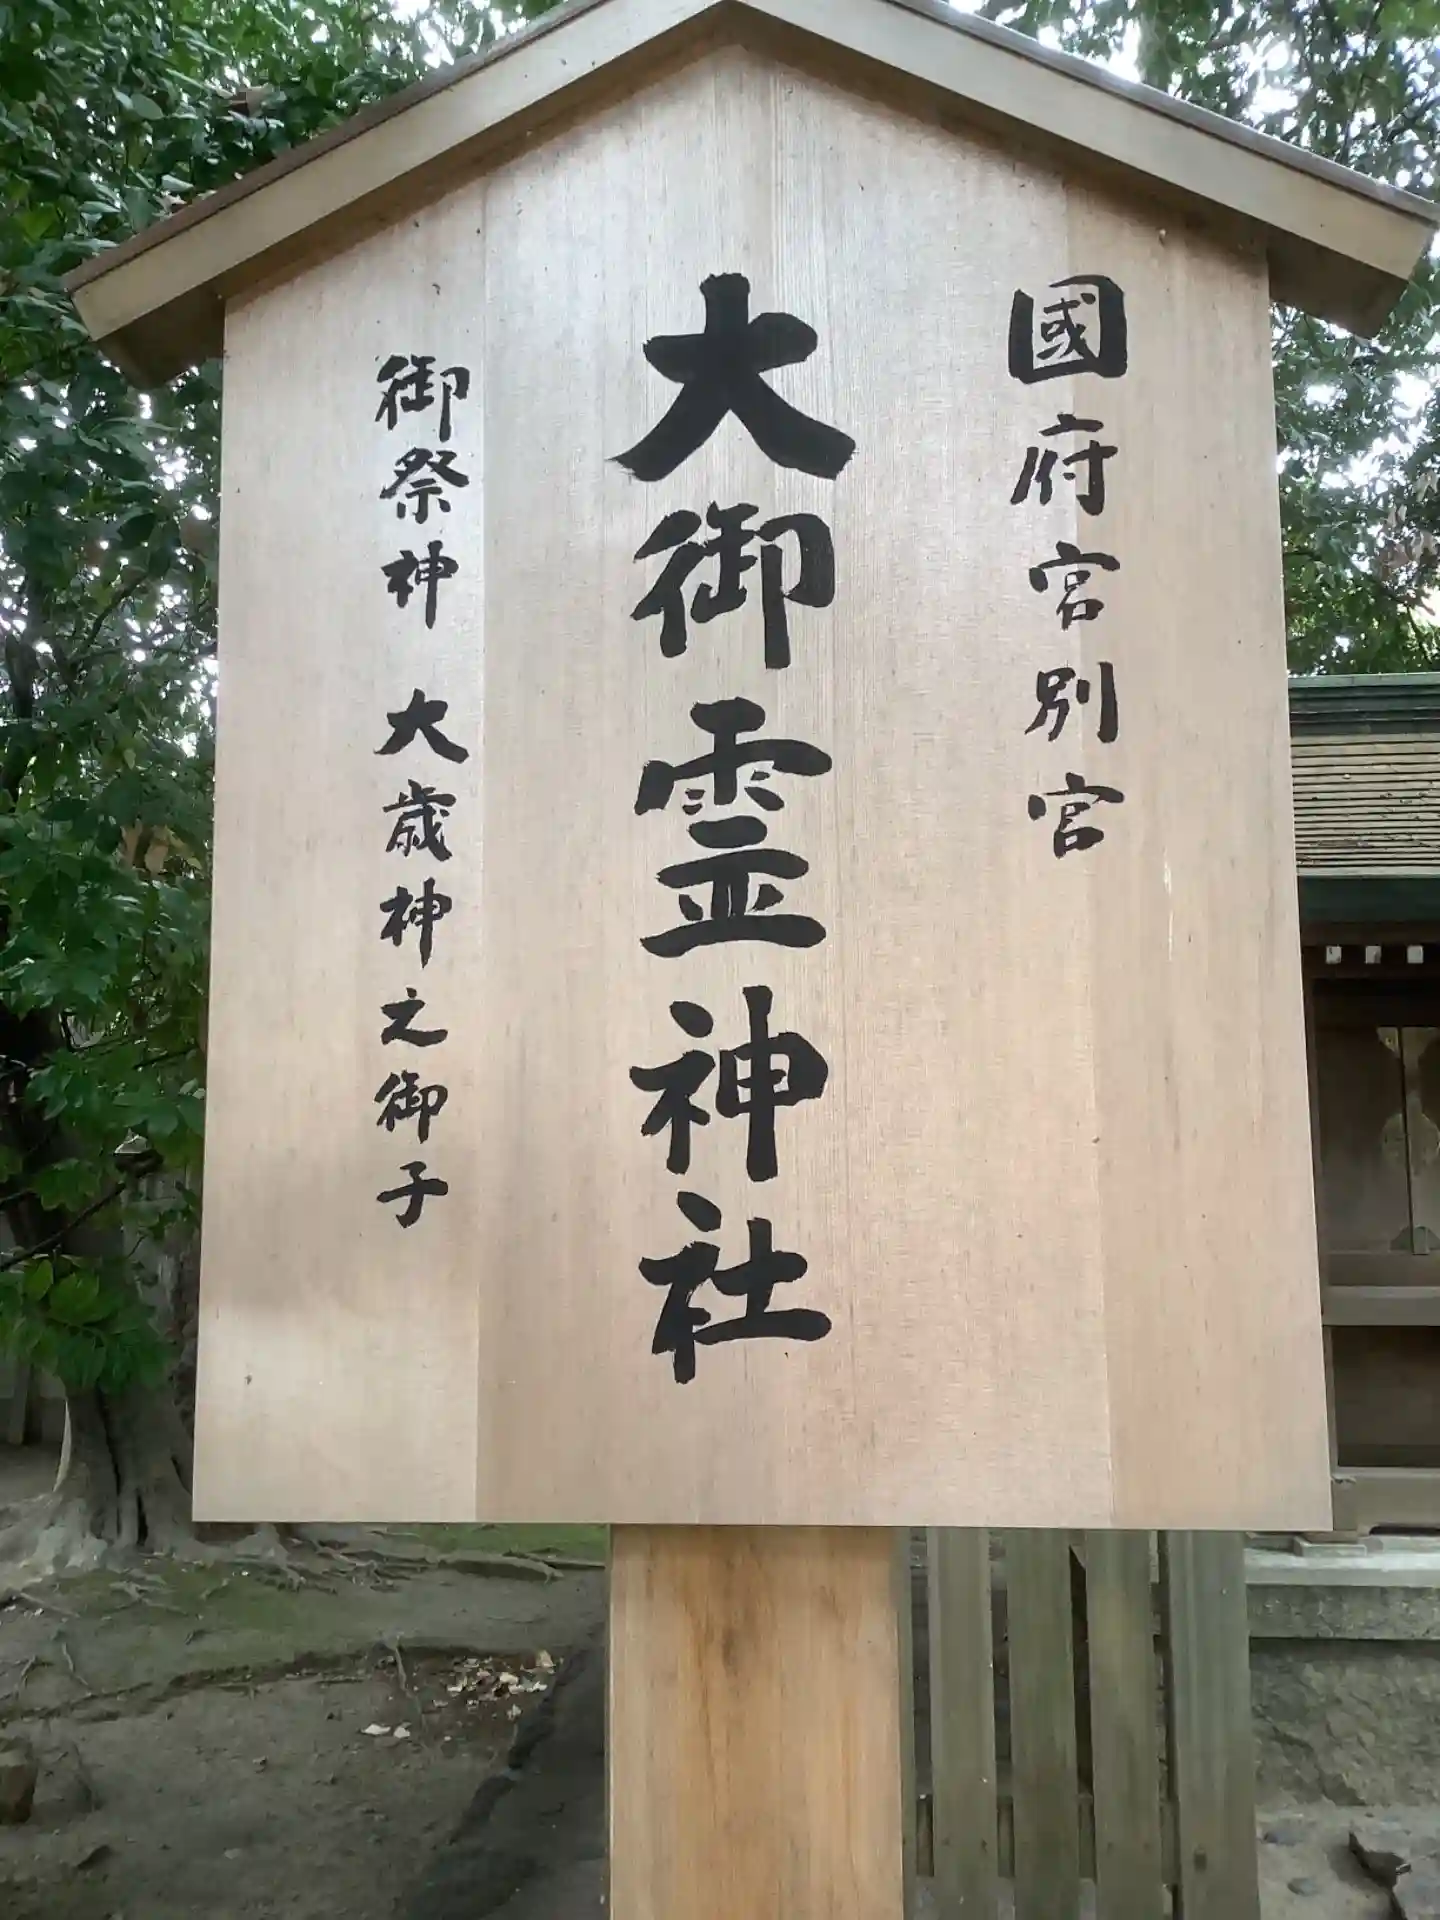 國府宮別宮
大御霊神社
御祭神 大歳神之御子